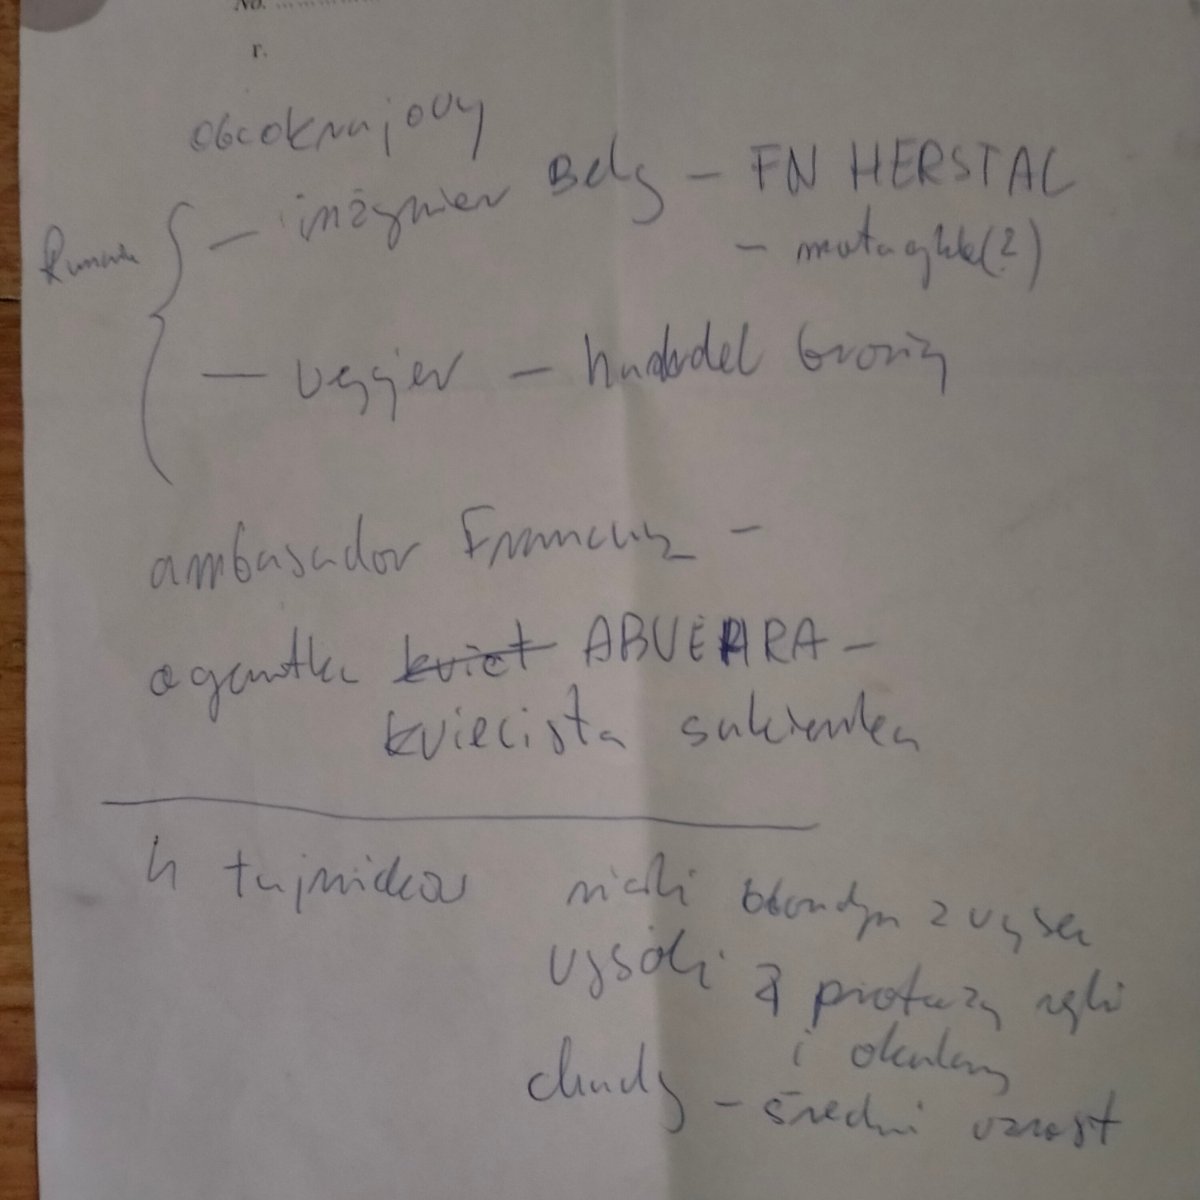 No. ..................
r.
obcokrajowy
— inżynier Belg — FN HERSTAL
— motocykle(?)
— węgier — handel bronią
ambasador Francuz —
agentka kwiet ABWEHRA —
kwiecista sukienka
4 tajników niski blondyn z wąsem
wysoki z protezą ręki
i okulary
chudy — średni wzrost